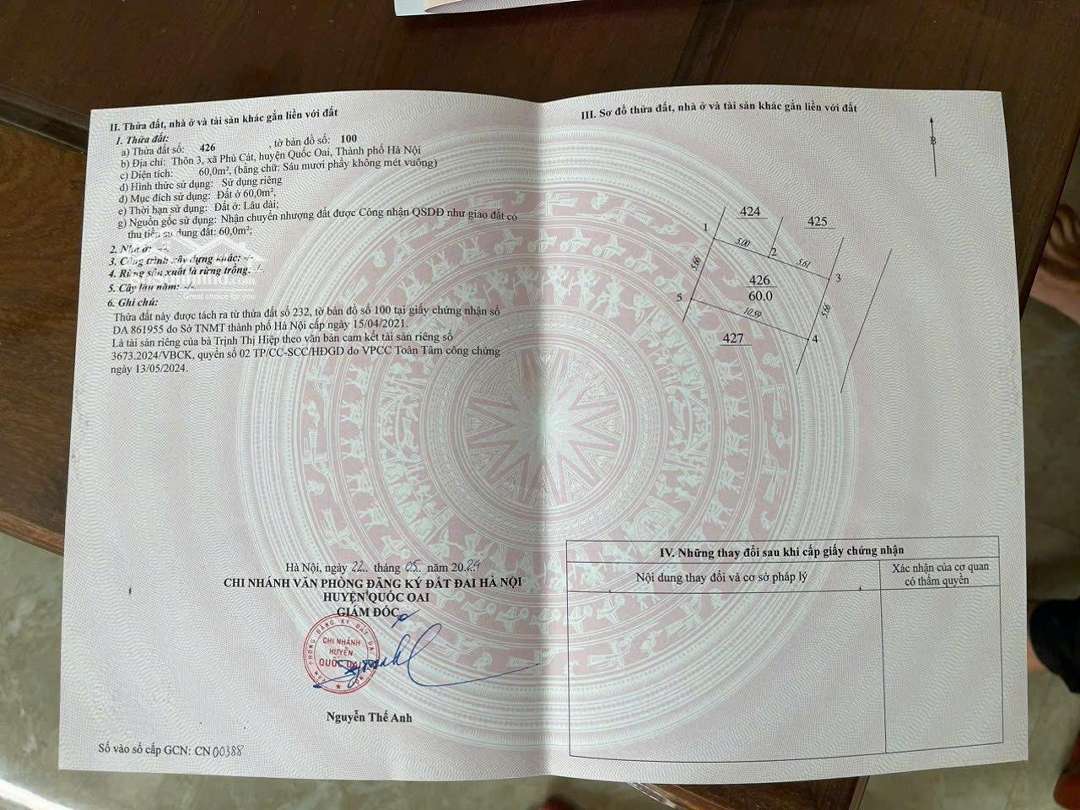 II. Thửa đất, nhà ở và tài sản khác gắn liền với đất
1. Thửa đất:
a) Thửa đất số: 426 , tờ bản đồ số: 100
b) Địa chỉ: Thôn 3, xã Phú Cát, huyện Quốc Oai, Thành phố Hà Nội
c) Diện tích: 60,0m², (bằng chữ: Sáu mươi phẩy không mét vuông)
d) Hình thức sử dụng: Sử dụng riêng
đ) Mục đích sử dụng: Đất ở 60,0m²,
e) Thời hạn sử dụng: Đất ở: Lâu dài;
g) Nguồn gốc sử dụng: Nhận chuyển nhượng đất được Công nhận QSDĐ như giao đất có
thu tiền sử dụng đất: 60,0m²;
2. Nhà ở: -/-
3. Công trình xây dựng khác: -/-
4. Rừng sản xuất là rừng trồng: -/-
5. Cây lâu năm: -/-
6. Ghi chú:
Thửa đất này được tách ra từ thửa đất số 232, tờ bản đồ số 100 tại giấy chứng nhận số
DA 861955 do Sở TNMT thành phố Hà Nội cấp ngày 15/04/2021.
Là tài sản riêng của bà Trịnh Thị Hiệp theo văn bản cam kết tài sản riêng số
3673.2024/VBCK, quyển số 02 TP/CC-SCC/HĐGD do VPCC Toàn Tâm công chứng
ngày 13/05/2024.
Great choice for you
Hà Nội, ngày 22 tháng 05 năm 2024
CHI NHÁNH VĂN PHÒNG ĐĂNG KÝ ĐẤT ĐAI HÀ NỘI
HUYỆN QUỐC OAI
GIÁM ĐỐC
CHI NHÁNH
HUYỆN
QUỐC OAI
Nguyễn Thế Anh
Số vào sổ cấp GCN: CN 00388
III. Sơ đồ thửa đất, nhà ở và tài sản khác gắn liền với đất
B
424
425
1
5.00
2
5.61
3
5.66
426
60.0
5.66
5
10.59
4
427
IV. Những thay đổi sau khi cấp giấy chứng nhận
Nội dung thay đổi và cơ sở pháp lý
Xác nhận của cơ quan
có thẩm quyền